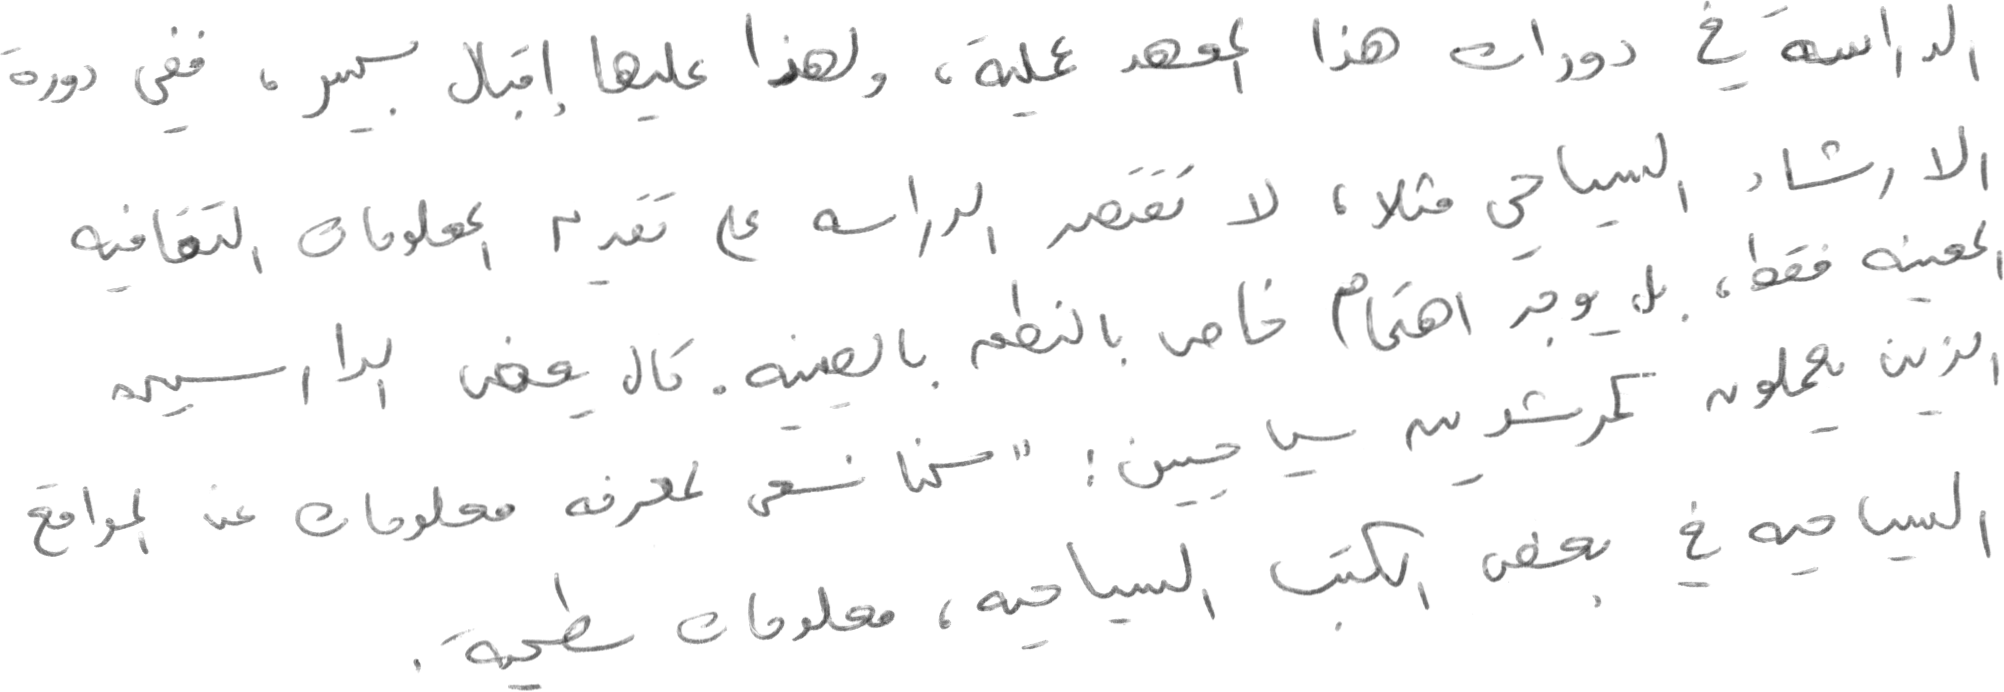 الدراسة في دورات هذا المعهد عملية، ولهذا عليها إقبال كبير، ففي دورة
الارشاد السياحي مثلا، لا تقتصر الدراسه على تقديم المعلومات الثقافيه
المعينه فقط، بل يوجد اهتمام خاص بالنطق بالصينيه. قال بعض الدارسين
الذين يعملون كمرشدين سياحيين: "كنا نسعى لمعرفه معلومات عن المواقع
السياحيه في بعض الكتب السياحيه، معلومات سطحية.